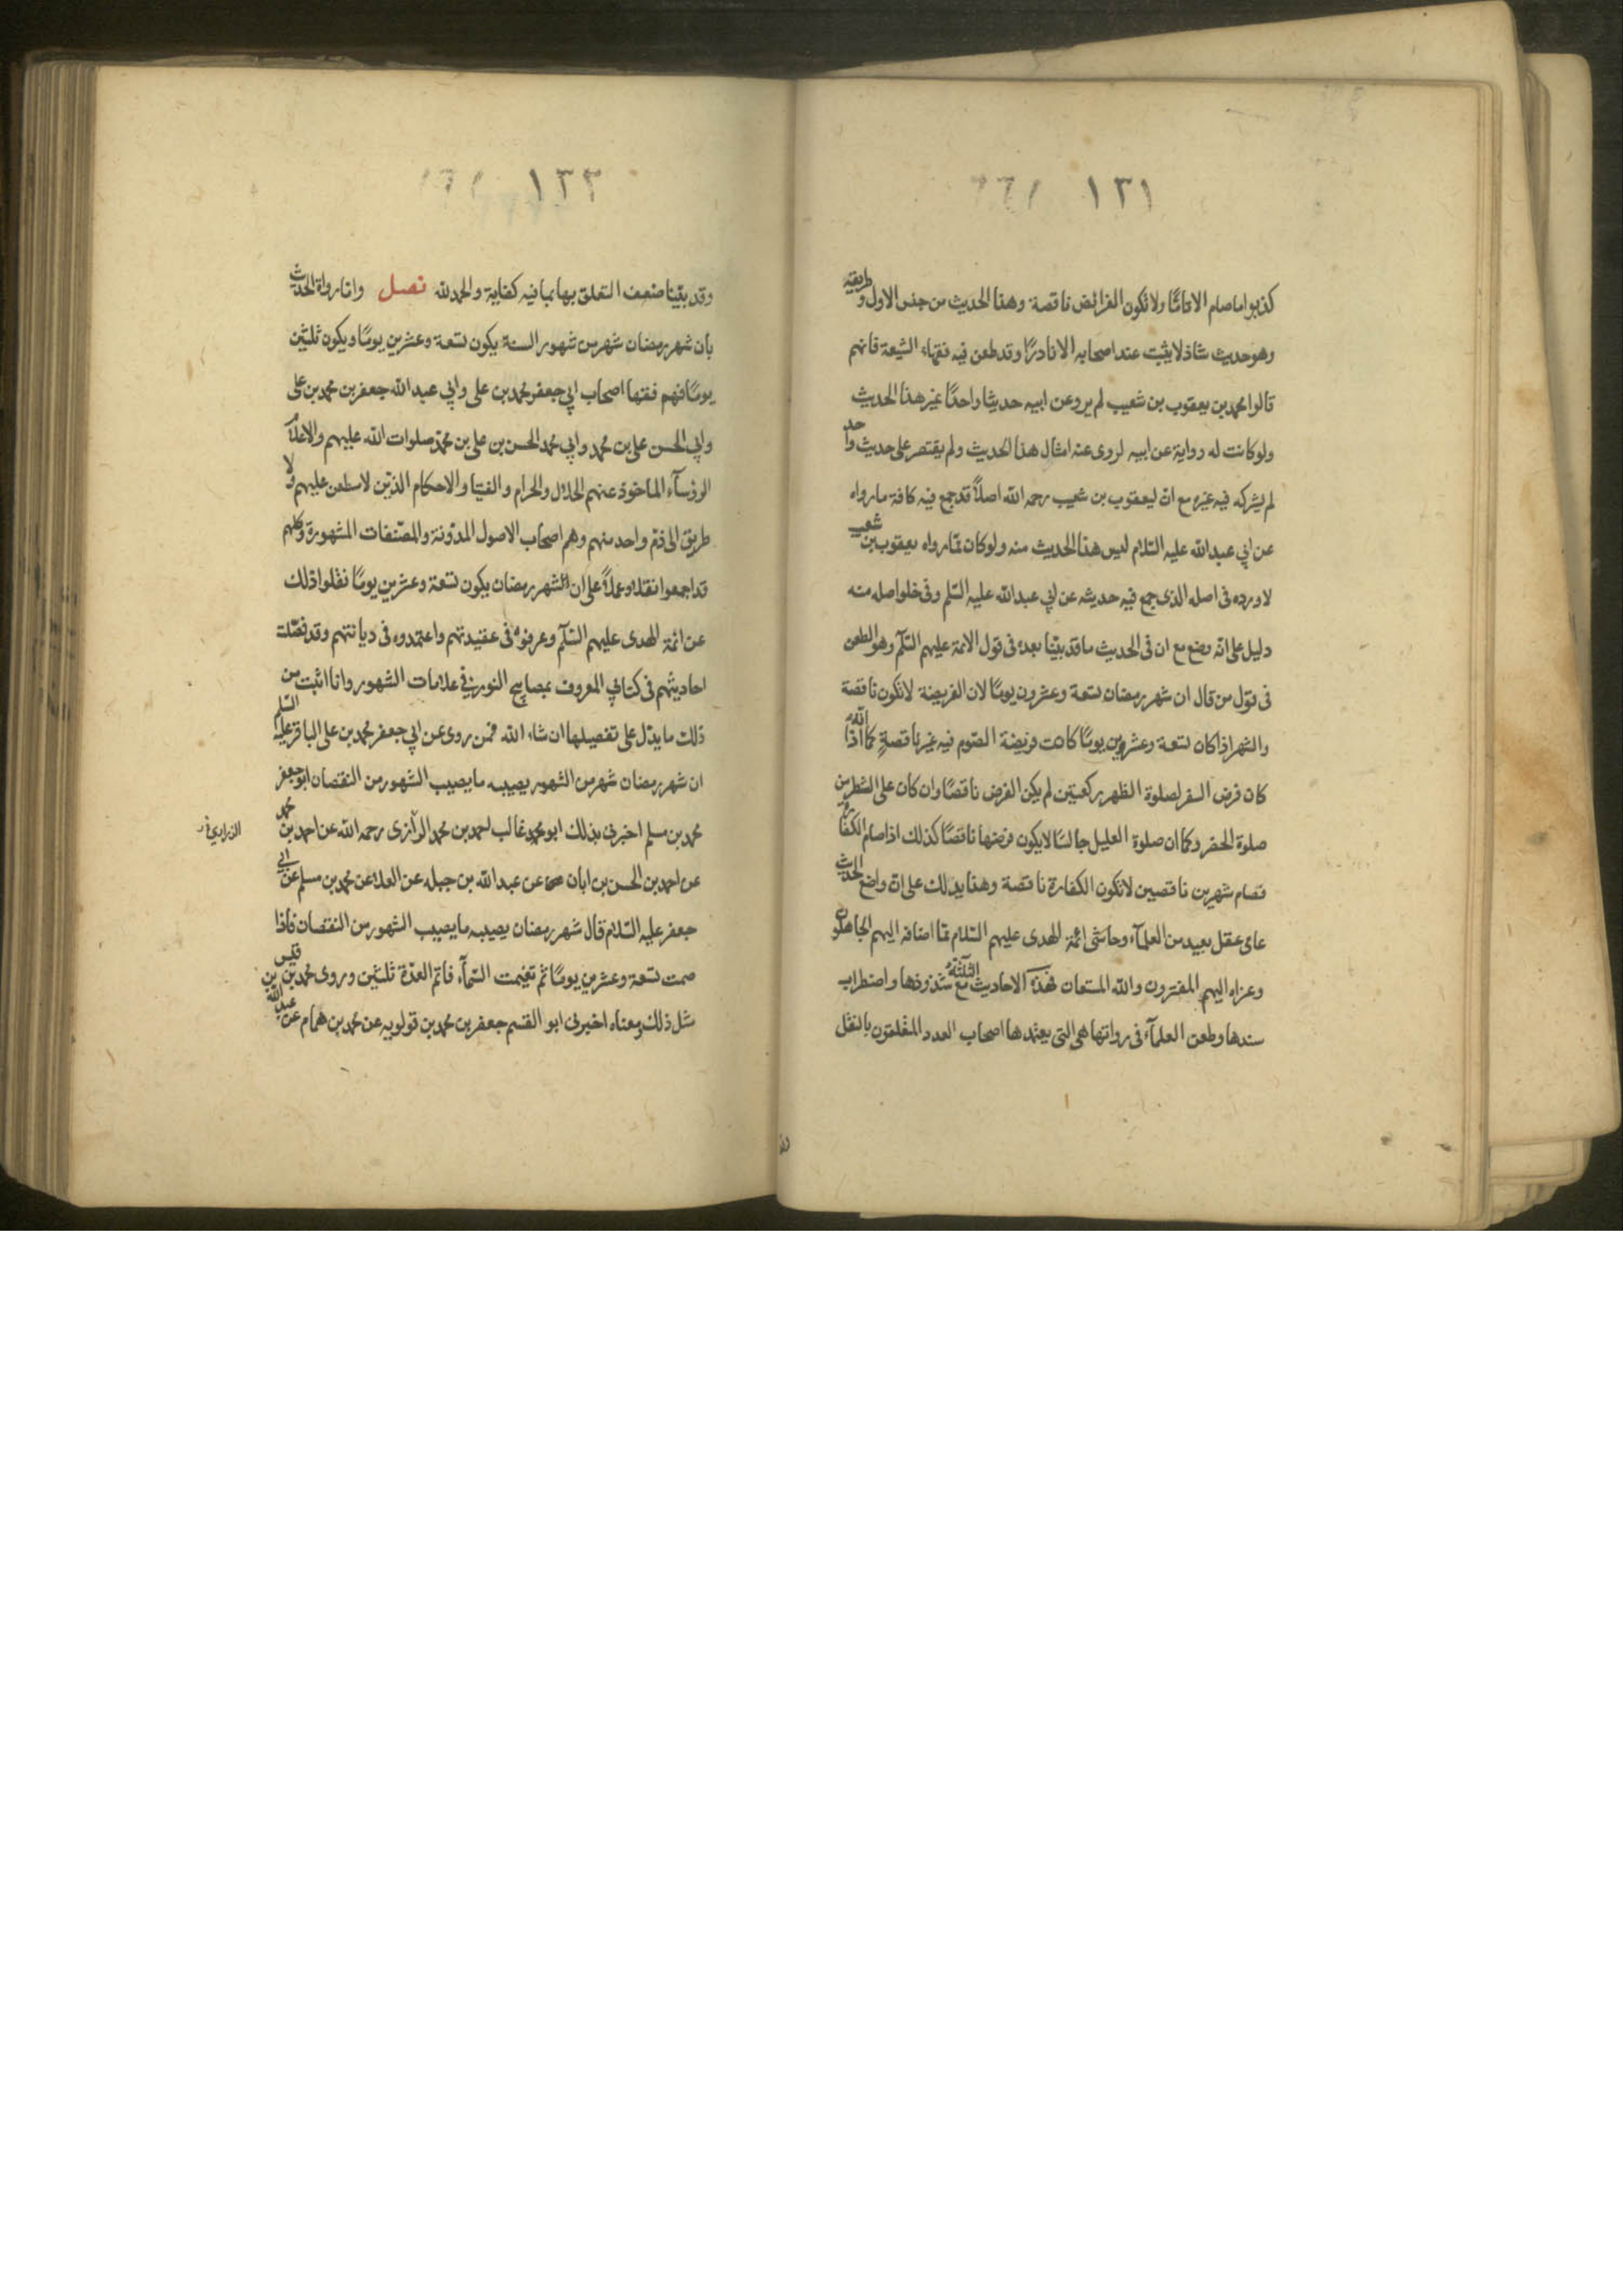 ١٣١
كذبوا ما صام الا تامًا ولا تكون الفرائض ناقصة وهذا الحديث من جنس الاول وطريقه
وهو حديث شاذ لا يثبت عند اصحابه الا نادرًا وقد طعن فيه فقهاء الشيعة فانهم
قالوا محمد بن يعقوب بن شعيب لم يرو عن ابيه حديثا واحدًا غير هذا الحديث
ولو كانت له رواية عن ابيه لروى عنه امثال هذا الحديث ولم يقتصر على حديث واحد
لم يشركه فيه غيره مع انّ ليعقوب بن شعيب رحمه الله اصلاً قد جمع فيه كافة ما رواه
عن ابي عبد الله عليه السّلام ليس هذا الحديث منه ولو كان ممّا رواه يعقوب بن شعيب
لاورده في اصله الذى جمع فيه حديثه عن ابي عبد الله عليه السّلم وفى خلو اصله منه
دليل على انّه وضع مع ان فى الحديث ما قد بيّنا بعده فى قول الائمة عليهم السّلم وهو الطعن
فى قول من قال ان شهر رمضان تسعة وعشرون يومًا لان الفريضة لا تكون ناقصة
والشهر اذا كان تسعة وعشرين يومًا كانت فريضة الصّوم فيه غير ناقصةٍ كما انّه اذا
كان فرض السفر لصلوة الظهر ركعتين لم يكن الفرض ناقصًا وان كان على الشطر من
صلوة الحضر وكما ان صلوة العليل جالسًا لا يكون فرضها ناقصًا كذلك اذا صام الكفّارة
فصام شهرين ناقصين لا تكون الكفارة ناقصة وهذا يدلك على انّ واضع الحديث
عامى عقل بعيد من العلمآء وحاشى ائمة الهدى عليهم السّلام ممّا اضافه اليهم الجاهلون
وعزاه اليهم المفترون والله المستعان فهذه الاحاديث الثلثة مع شذوذها واضطراب
سندها وطعن العلمآء فى رواتها هى التى يعتمدها اصحاب العدد المغلقون بالنقل
١٣٢
وقد بيّنا ضعف التعلق بها بما فيه كفاية والحمد لله فصل وامّا رواة الحديث
بان شهر رمضان شهر من شهور السنة يكون تسعة وعشرين يومًا ويكون ثلثين
يومًا فهم فقها اصحاب ابي جعفر محمد بن على وابي عبد الله جعفر بن محمد بن على
وابي الحسن على بن محمد وابي محمد الحسن بن على بن محمّد صلوات الله عليهم والاعلام
الرؤسآء الماخوذ عنهم الحلال والحرام والفتيا والاحكام الذين لا يطعن عليهم ولا
طريق الى ذمّ واحد منهم وهم اصحاب الاصول المدوّنة والمصنّفات المشهورة وكلهم
قد اجمعوا نقلا وعملاً على ان شهر رمضان يكون تسعة وعشرين يومًا نقلوا ذلك
عن ائمة الهدى عليهم السّلم وعرفوه فى عقيدتهم واعتمدوه فى ديانتهم وقد فصّلت
احاديثهم فى كتابي المعروف بمصابيح النور في علامات الشهور وانا اثبت من
ذلك ما يدّل على تفصيلها ان شاء الله فممن روى عن ابي جعفر محمد بن على الباقر عليه السّلم
ان شهر رمضان شهر من الشهور يصيبه ما يصيب الشهور من النقصان ابو جعفر
محمد بن مسلم اخبرنى بذلك ابو محمد غالب احمد بن محمد الرآزى رحمه الله عن احمد بن محمد
الزراري
عن احمد بن الحسن بن ابان عن عبد الله بن جبله عن العلا عن محمد بن مسلم عن ابي
جعفر عليه السّلام قال شهر رمضان يصيبه ما يصيب الشهور من النقصان فاذا
صمت تسعة وعشرين يومًا ثم تغيمت السّمآء فاتم العدّة ثلثين وروى محمد بن قيس
مثل ذلك ومعناه اخبرنى ابو القسم جعفر بن محمد بن قولويه عن محمد بن همام عن عبد الله بن